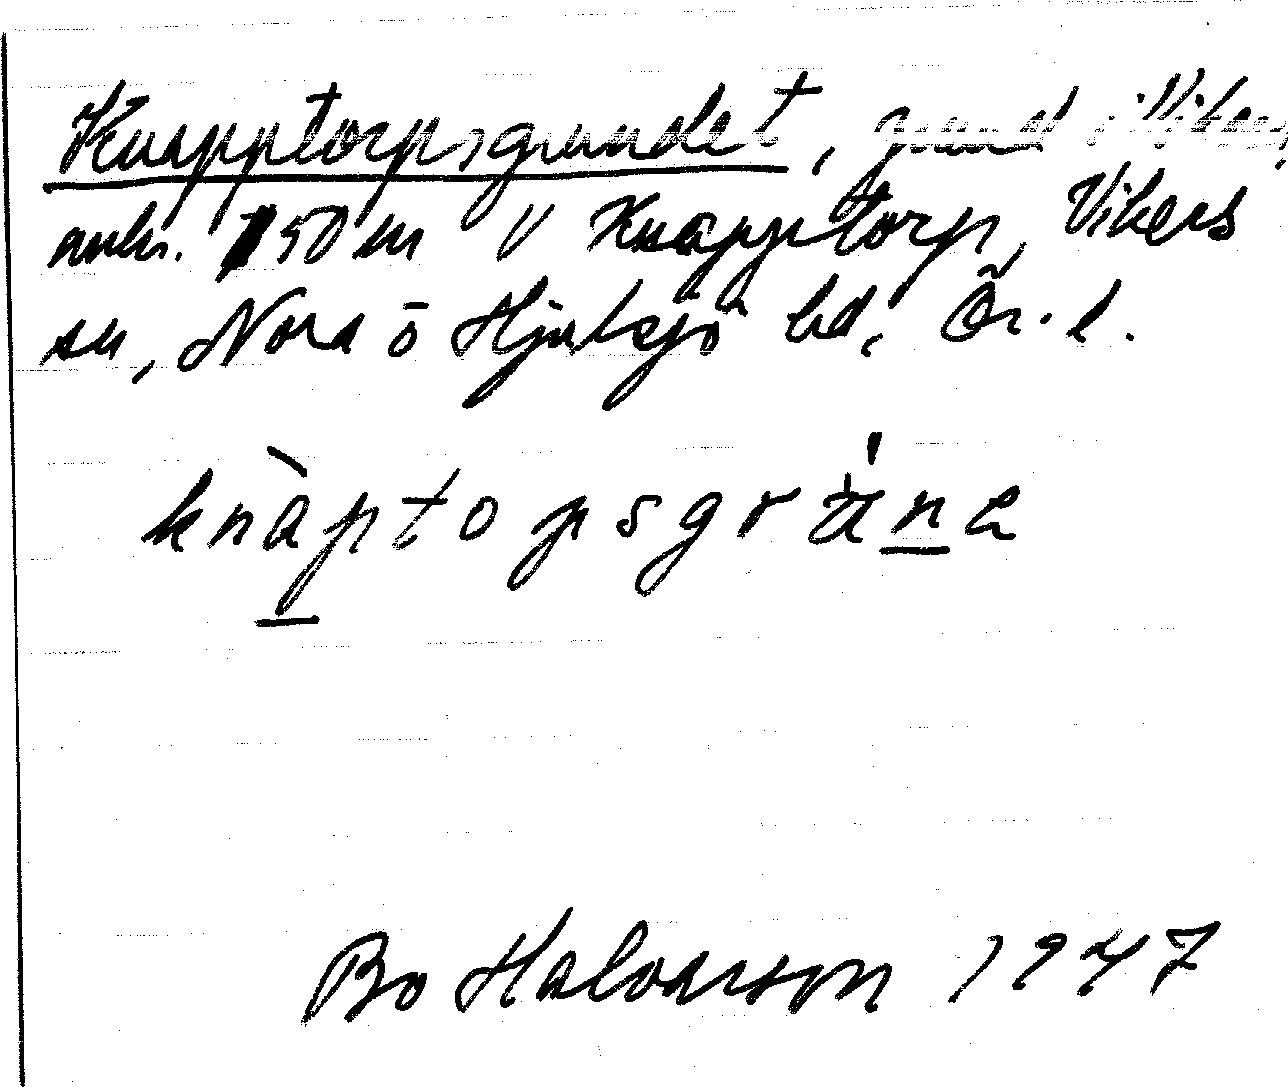 Knapptorpsgrundet, grund i Viken,
omkr. 150 m V Knapptorp, Vikers
sn, Nora o Hjulsjö hd, Ör. l.
knàptopsgrṳ́ne
Bo Halvarson 1947